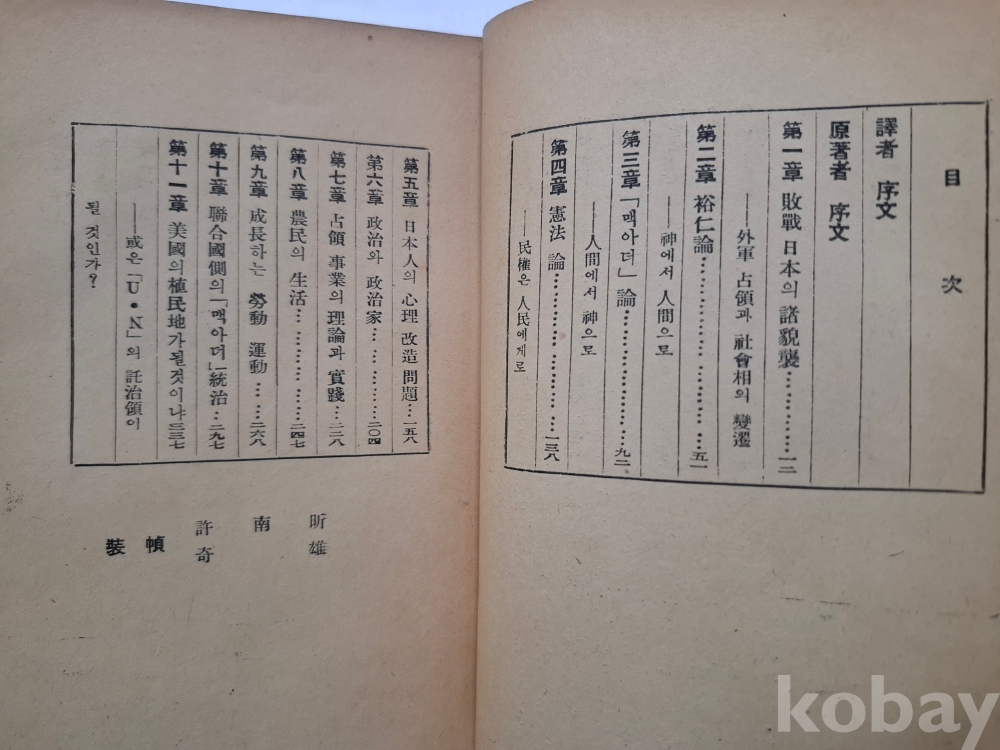 目 次
譯者 序文
原著者 序文
第一章 敗戰 日本의 諸貌襲…………一二
——外軍 占領과 社會相의 變遷
第二章 裕仁論……………………五一
——神에서 人間으로
第三章 「맥아더」論……………………九二
——人間에서 神으로
第四章 憲法 論……………………一三八
——民權은 人民에게로
第五章 日本人의 心理 改造 問題…一五八
第六章 政治와 政治家…………二〇四
第七章 占領 事業의 理論과 實踐…二二八
第八章 農民의 生活……………二四七
第九章 成長하는 勞動 運動……二六八
第十章 聯合國側의「맥아더」統治…二九七
第十一章 美國의 植民地가될것이냐三三七
——或은「U•N」의 託治領이
될 것인가?
裝 幀
許 南 昕
奇 雄
kobay